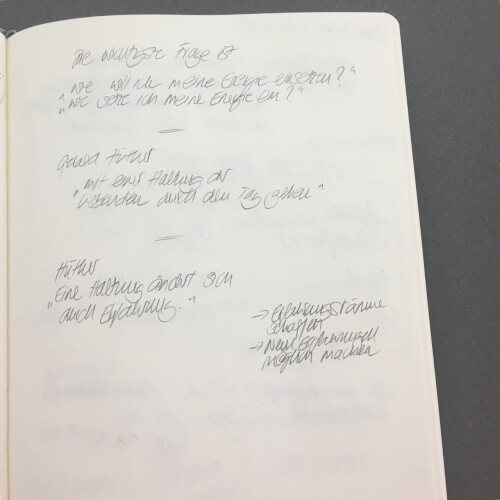 Die wichtigste Frage ist
"Wie will ich meine Energie einsetzen?"
"Wie setze ich meine Energie ein?"
Gerald Hüther
"mit einer Haltung der
Liebenden durch den Tag gehen"
Hüther
"Eine Haltung ändert sich
durch Erfahrung."
→ Erfahrungsräume
schaffen
→ Neue Erfahrungen
möglich machen